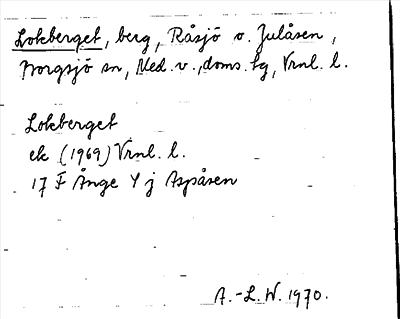 Lokberget, berg, Råsjö o. Julåsen,
Borgsjö sn, Med. v., doms. sg, Vrnl. l.
Lokberget
ek (1969) Vrnl. l.
17 F Ånge Y j Aspåsen
A.-L. W. 1970.